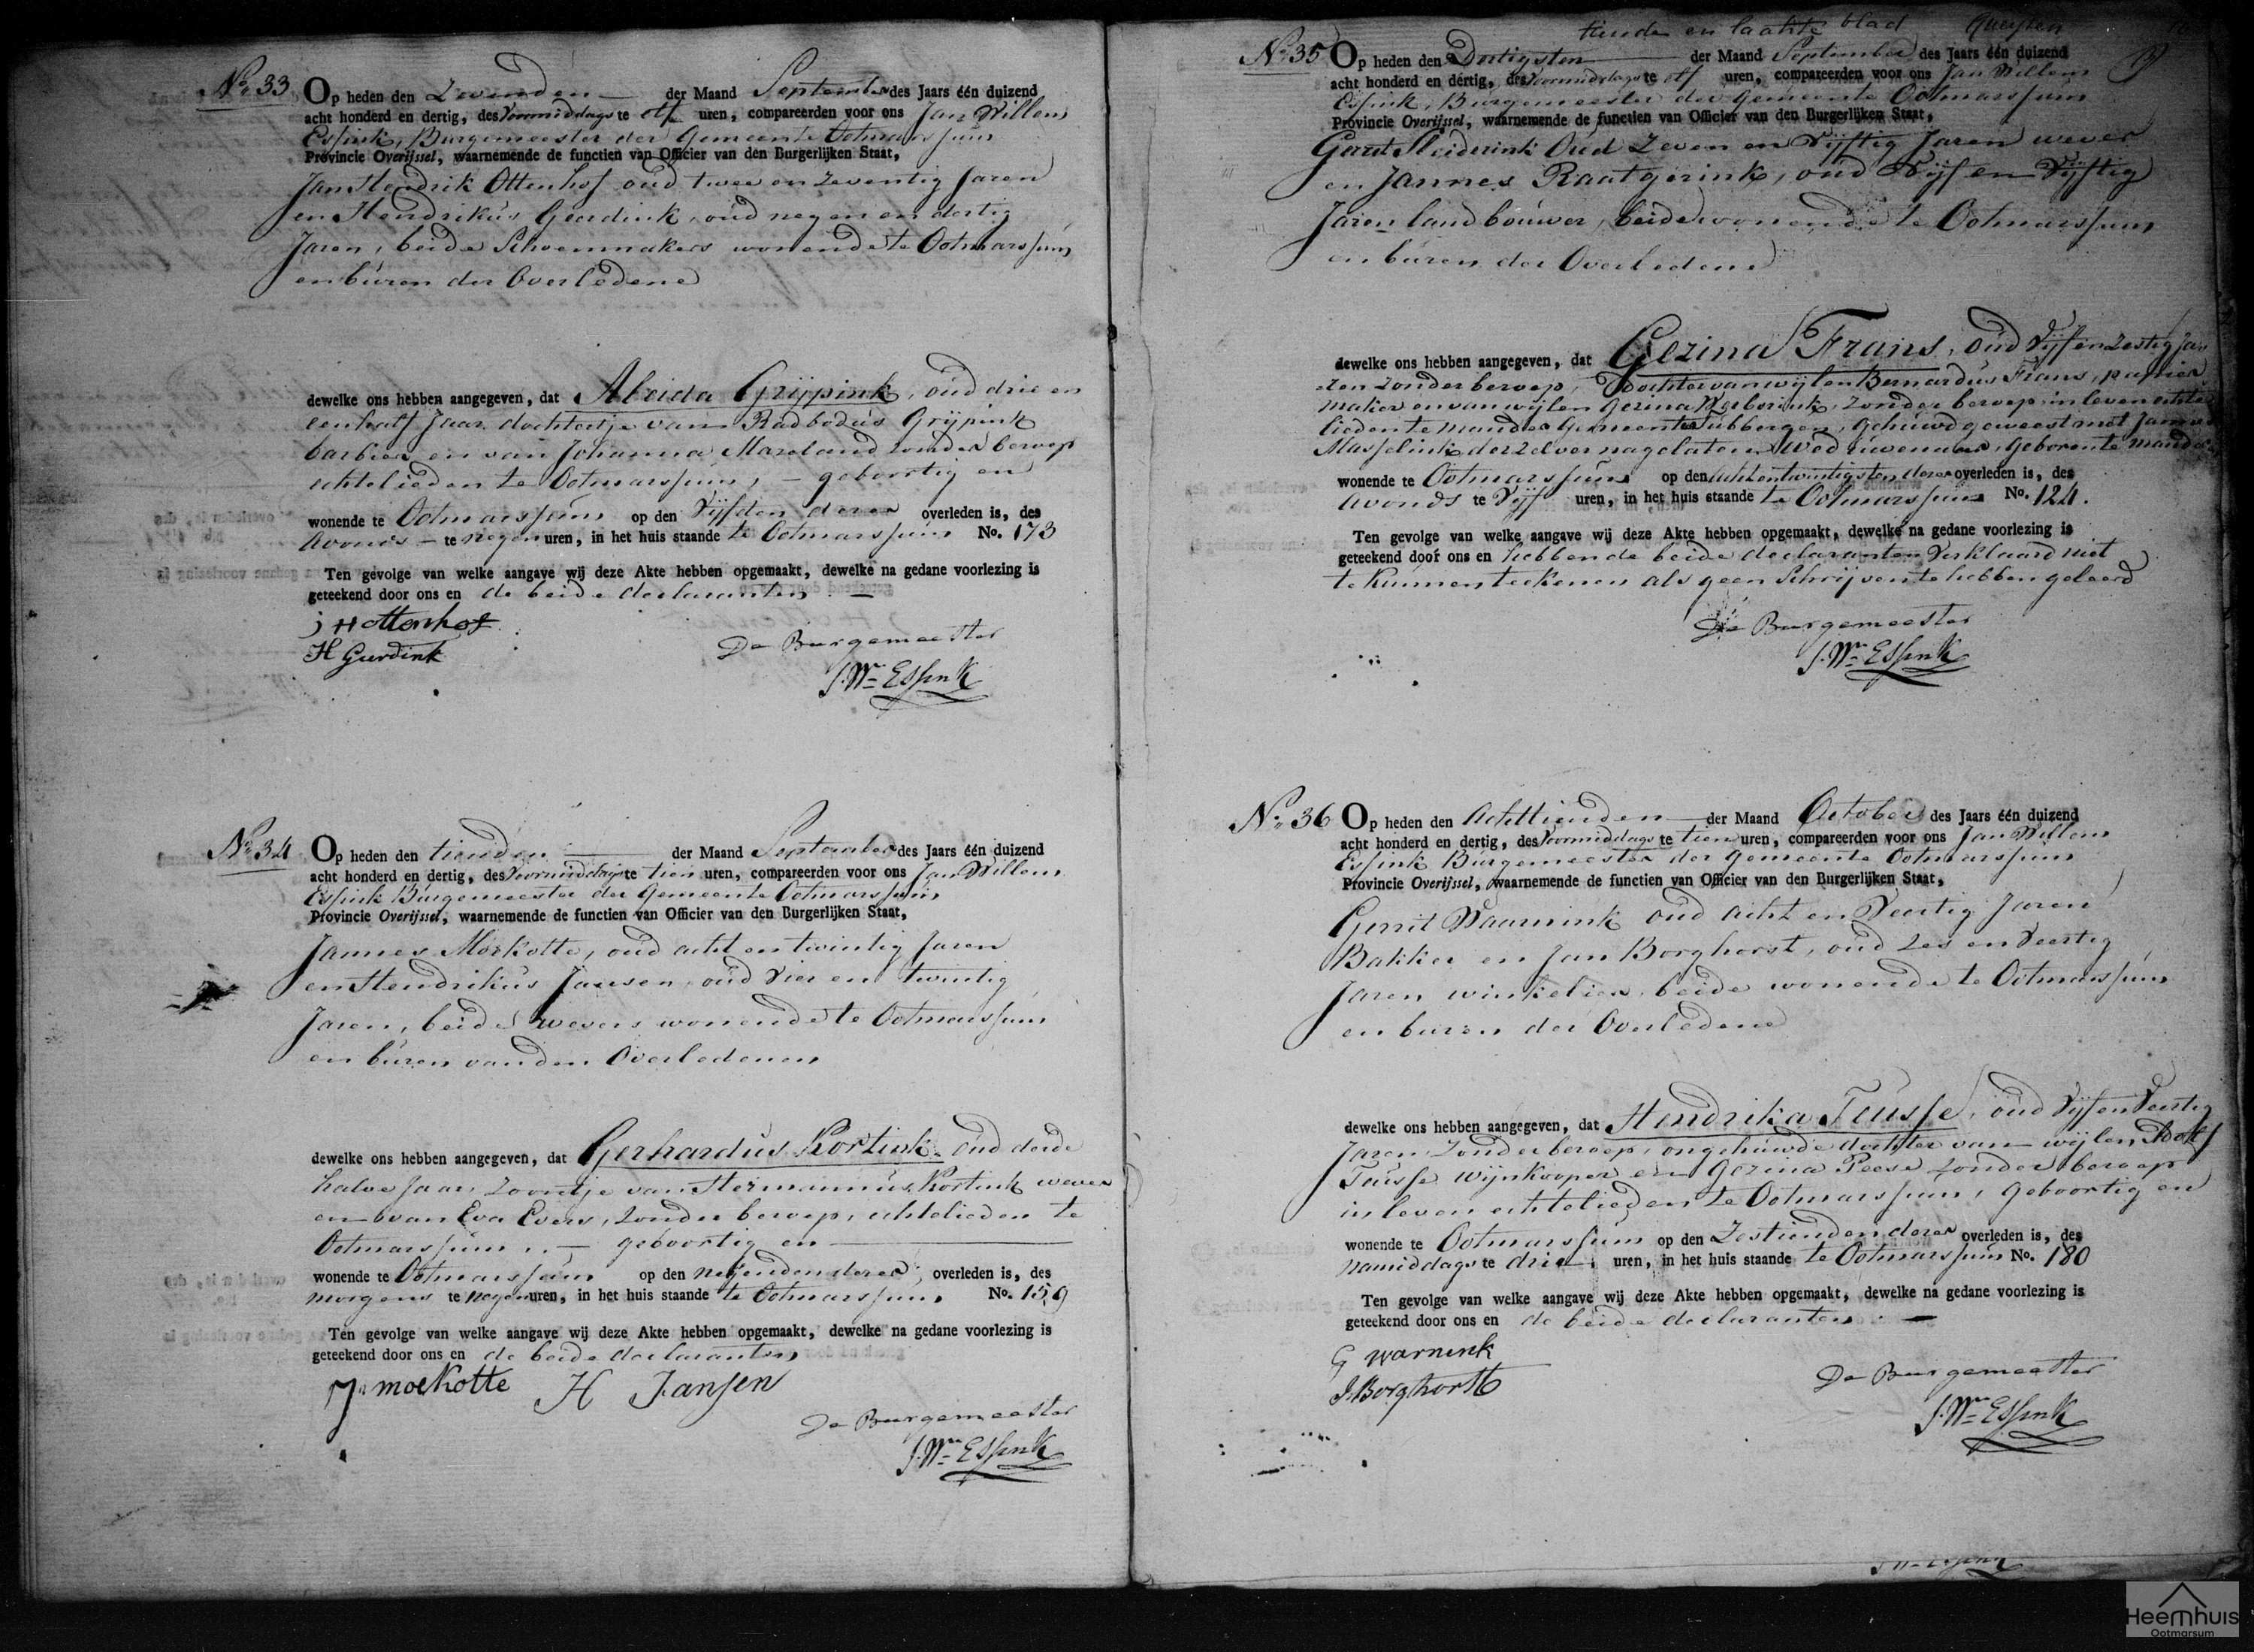 No 33 Op heden den Zevenden der Maand September des Jaars één duizend
acht honderd en dertig, des Voormiddags te elf uren, compareerden voor ons Jan Willem
Essink, Burgemeester der Gemeente Ootmarssum
Provincie Overijssel, waarnemende de functien van Officier van den Burgerlijken Staat,
Jan Hendrik Ottenhof oud twee en zeventig Jaren
en Hendrikus Geerdink, oud negen en dertig
Jaren, beide Schoenmakers wonende te Ootmarssum
en buren der Overledene
dewelke ons hebben aangegeven, dat Aleida Grijpink, oud drie en
eenhalf Jaar dochtertje van Radbodus Grijpink
barbier en van Johanna Maseland zonder beroep
echtelieden te Ootmarssum, - geboortig en
wonende te Ootmarssum op den Vijfden dezer overleden is, des
Avonds - te negen uren, in het huis staande te Ootmarssum No. 173
Ten gevolge van welke aangave wij deze Akte hebben opgemaakt, dewelke na gedane voorlezing is
geteekend door ons en de beide declaranten
J H ottenhof
H Gerdink
De Burgemeester
J. Wm Essink
No 34 Op heden den tienden der Maand September des Jaars één duizend
acht honderd en dertig, des Voormiddags te tien uren, compareerden voor ons Jan Willem
Essink Burgemeester der Gemeente Ootmarssum
Provincie Overijssel, waarnemende de functien van Officier van den Burgerlijken Staat,
Jannes Morkotte, oud acht en twintig Jaren
en Hendrikus Jansen, oud Vier en twintig
Jaren, beide wevers wonende te Ootmarssum
en buren van den Overledenen
dewelke ons hebben aangegeven, dat Gerhardus Kortink oud derde
halve Jaar, Zoontje van Hermannus Kortink wever
en van Eva Evers, Zonder beroep, echtelieden te
Ootmarssum, - geboortig en
wonende te Ootmarssum op den negenden dezer overleden is, des
morgens te negen uren, in het huis staande te Ootmarssum. No. 159
Ten gevolge van welke aangave wij deze Akte hebben opgemaakt, dewelke na gedane voorlezing is
geteekend door ons en de beide declaranten
J. moekotte H Jansen
De Burgemeester
J. Wm Essink
tiende en laatste blad
No 35 Op heden den Dertigsten der Maand September des Jaars één duizend
acht honderd en dertig, des Voormiddags te elf uren, compareerden voor ons Jan Willem
Essink, Burgemeester der Gemeente Ootmarssum
Provincie Overijssel, waarnemende de functien van Officier van den Burgerlijken Staat,
Gerrit Sleiderink Oud Zeven en Vijftig Jaren wever
en Jannes Raatgerink, oud Vijf en Vijftig
Jaren landbouwer, beide wonende te Ootmarssum
en buren der Overledene
dewelke ons hebben aangegeven, dat Gezina Frans, oud Vijf en Zestig Ja
ren zonder beroep, dochter van wijlen Bernardus Frans, papier
maker en van wijlen Gezina zonder beroep, in leven echte
lieden te Mander Gemeente Tubbergen, Gehuwd geweest met
Masselink derzelver nagelaten Weduwenaar, Geboren te Mander
wonende te Ootmarssum op den acht en twintigsten dezer overleden is, des
Avonds te Vijf uren, in het huis staande te Ootmarssum No. 124.
Ten gevolge van welke aangave wij deze Akte hebben opgemaakt, dewelke na gedane voorlezing is
geteekend door ons en hebbende beide declaranten Verklaard niet
te kunnen teekenen als geen Schrijven te hebben geleerd
De Burgemeester
J. Wm Essink
No 36 Op heden den Achttienden der Maand October des Jaars één duizend
acht honderd en dertig, des Voormiddags te tien uren, compareerden voor ons Jan Willem
Essink Burgemeester der Gemeente Ootmarssum
Provincie Overijssel, waarnemende de functien van Officier van den Burgerlijken Staat,
Gerrit Waarnink oud acht en Veertig Jaren
Bakker en Jan Borghorst, oud Zes en Veertig
Jaren winkelier, beide wonende te Ootmarssum
en buren der Overledene
dewelke ons hebben aangegeven, dat Hendrika Teusse, oud Vijf en Veertig
Jaren Zonder beroep, ongehuwde dochter van wijlen Adolf
Teusse wijnkooper en Gezina Peese Zonder beroep
in leven echtelieden te Ootmarssum, geboortig en
wonende te Ootmarssum op den Zestienden dezer overleden is, des
Namiddags te drie uren, in het huis staande te Ootmarssum No. 180
Ten gevolge van welke aangave wij deze Akte hebben opgemaakt, dewelke na gedane voorlezing is
geteekend door ons en de beide declaranten. -
G warnink
J. Borghorst
De Burgemeester
J. Wm Essink
Heemhuis
Ootmarsum